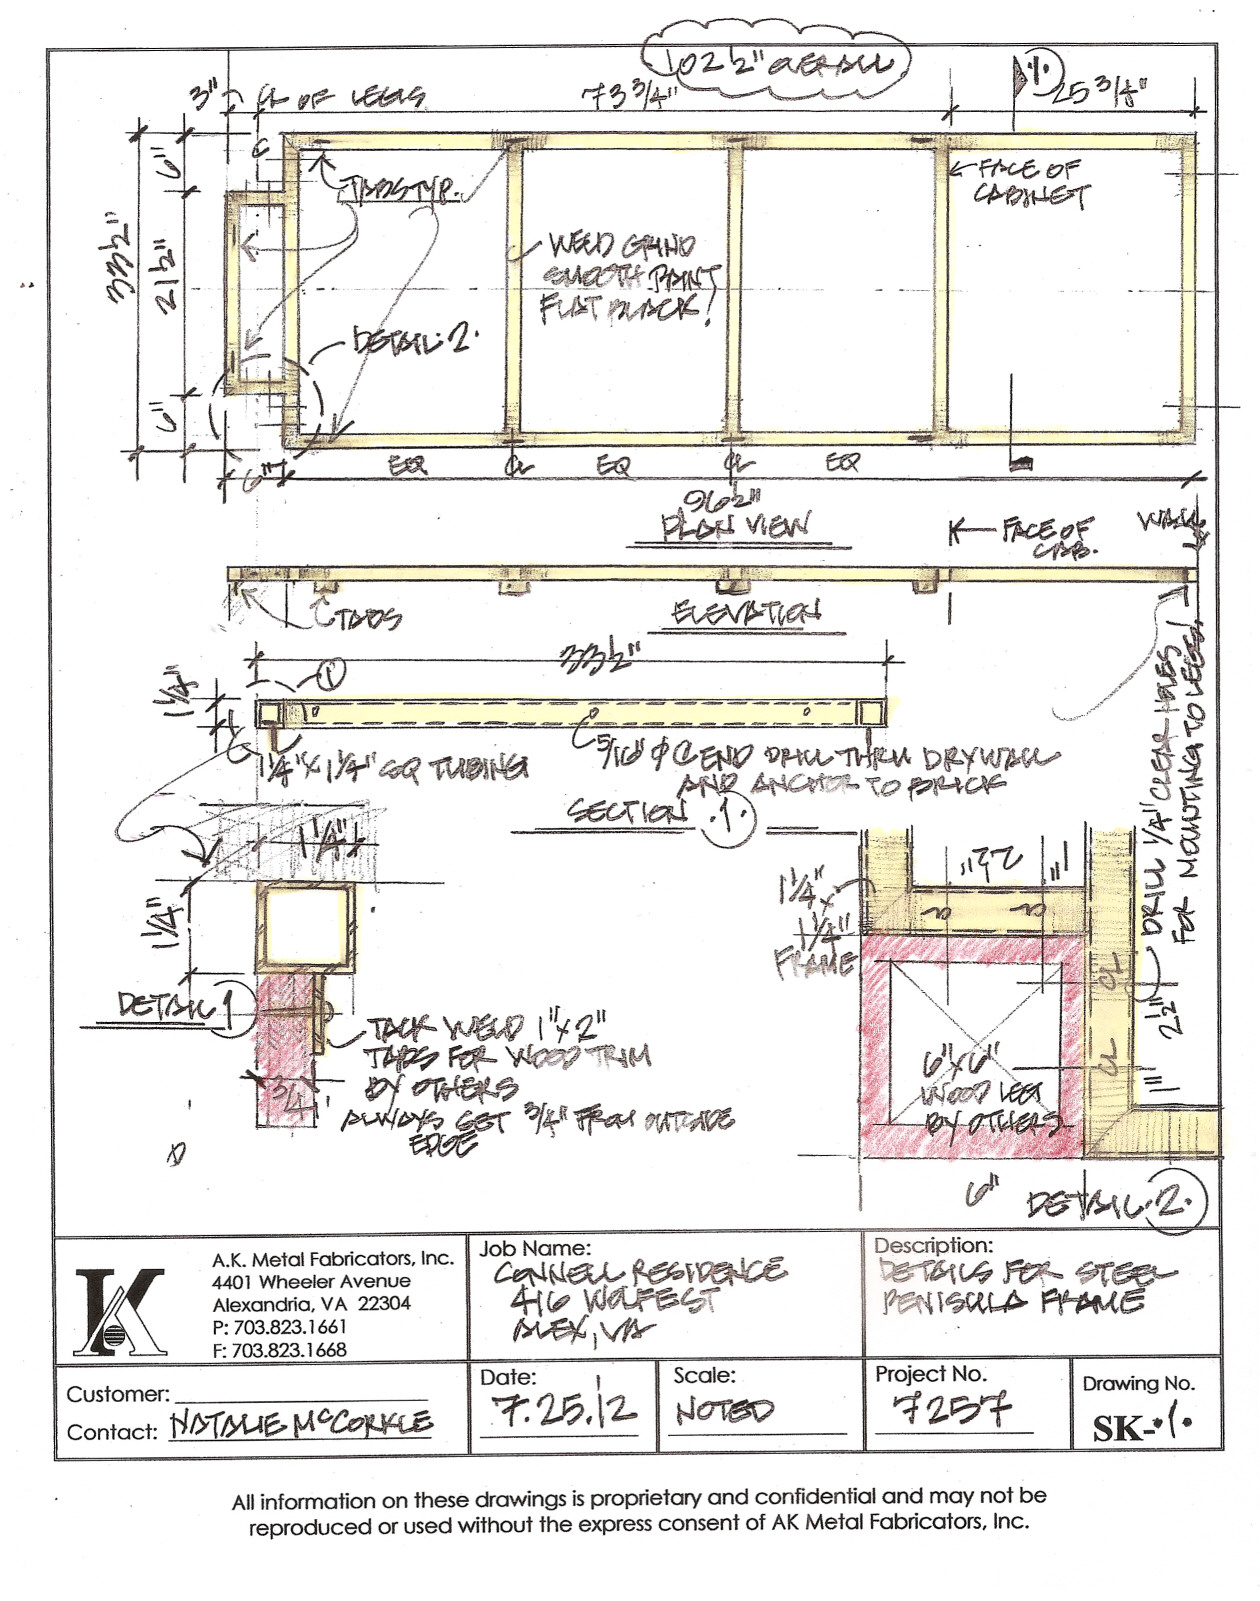 102 1/2" OVERALL
3"
CL OF LEGS
73 3/4"
1
25 3/4"
6"
TABS TYP.
FACE OF
CABINET
33 1/2"
21 1/2"
WELD GRIND
SMOOTH PAINT
FLAT BLACK!
DETAIL·2·
6"
6"
EQ
CL
EQ
CL
EQ
96 1/2"
PLAN VIEW
FACE OF
CAB.
WALL
TABS
ELEVATION
33 1/2"
1
1 1/4"
1 1/4" X 1 1/4" SQ TUBING
5/16" Ø C END DRILL THRU DRYWALL
AND ANCHOR TO BRICK
SECTION ·1·
DRILL 1/4" CLEAR HOLES
FOR MOUNTING TO LEGS!
1 1/4"
1 1/4"
1 1/4" x
1 1/4"
FRAME
2 1/2"
1"
CL
CL
CL
CL
2 1/2"
1"
DETAIL 1
TACK WELD 1" x 2"
TABS FOR WOOD TRIM
BY OTHERS
ALWAYS SET 3/4" FROM OUTSIDE
EDGE
3/4"
6" x 6"
WOOD LEG
BY OTHERS
6"
DETAIL·2·
A.K. Metal Fabricators, Inc.
4401 Wheeler Avenue
Alexandria, VA 22304
P: 703.823.1661
F: 703.823.1668
Job Name:
CONNELL RESIDENCE
416 WOLFEST
ALEX, VA
Description:
DETAILS FOR STEEL
PENISULA FRAME
Customer:
Contact: NATALIE McCORKLE
Date:
7.25.12
Scale:
NOTED
Project No.
7257
Drawing No.
SK-·1·
All information on these drawings is proprietary and confidential and may not be
reproduced or used without the express consent of AK Metal Fabricators, Inc.